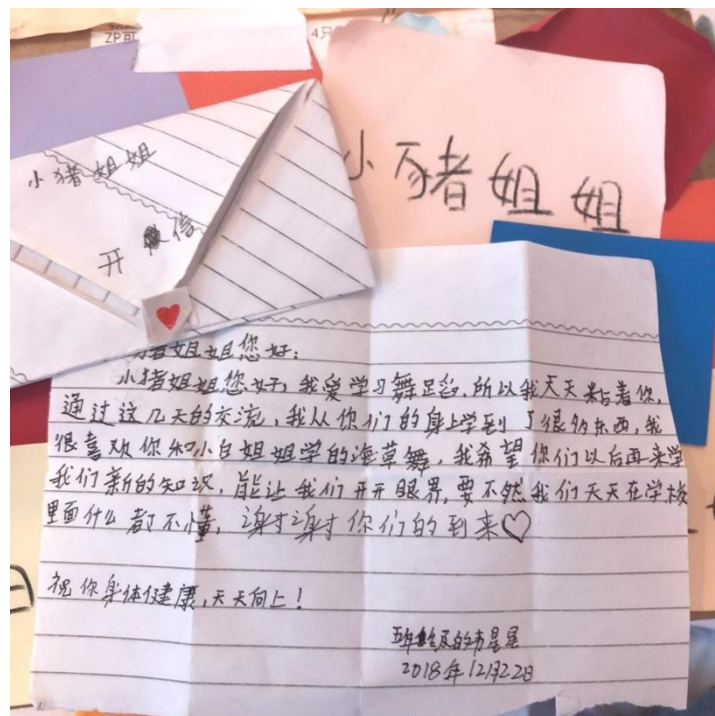 ZP可
4只
小猪姐姐
小猪姐姐
开
信
猪姐姐您好:
小猪姐姐您好,我爱学习舞蹈,所以我天天粘着你,
通过这几天的交流,我从你们的身上学到了很多东西,我
很喜欢你和小白姐姐学的海草舞,我希望你们以后再来学
我们新的知识,能让我们开开眼界,要不然我们天天在学校
里面什么都不懂,谢谢你们的到来♡
祝你身体健康,天天向上!
五年级的
星星
2018年12月22日